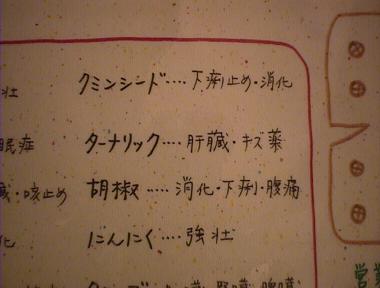 壮 クミンシード‥‥下痢止め・消化
眠症 ターナリック‥‥肝臓・キズ薬
・咳止め 胡椒‥‥消化・下痢・腹痛
化 にんにく‥‥強壮
営